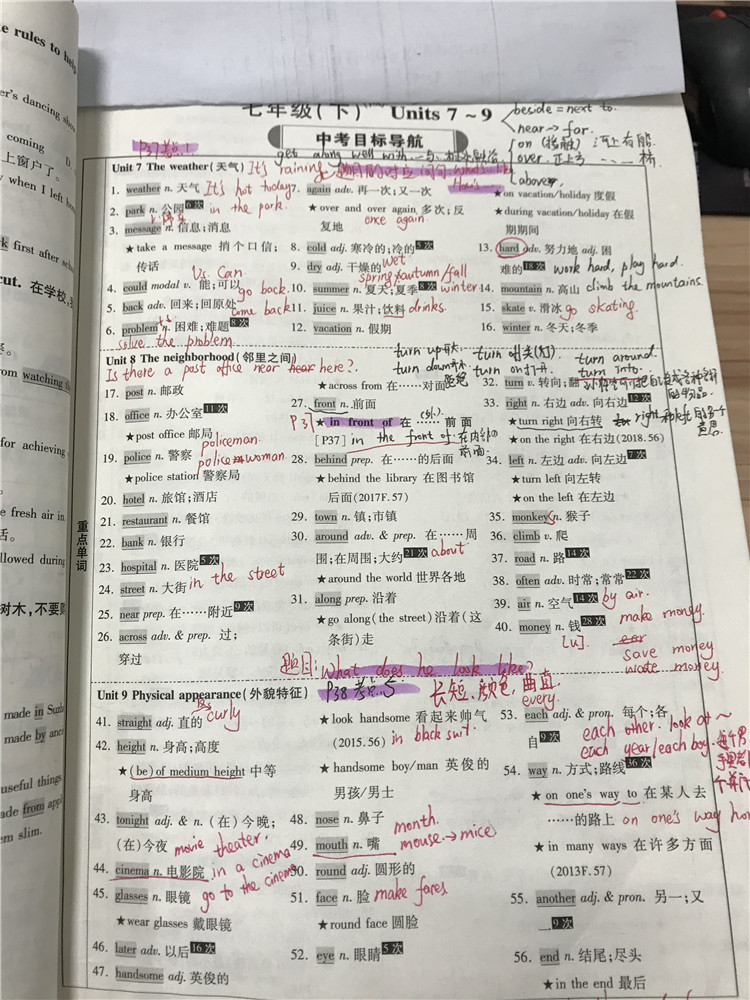 te rules to help
er's dancing show
coming D.
上窗户了。
y when I left hom
rk first after scho
cut. 在学校,
寒。
rom watching t
for achieving
e fresh air in
活。
llowed during
对木,不要
made in
made by anc
useful things
ade from appl
em slim.
七年级(下) Units 7~9
beside = next to.
near → far.
on (接触) 河上有船
over 正上方 …… 桥
above
中考目标导航
P37考点1
get along well with
重点单词
Unit 7 The weather(天气) It's raining
1. weather n. 天气 It's hot today
2. park n. 公园 6次 in the park.
3. message n. 信息;消息
★take a message 捎个口信;
传话
Vs. can
4. could modal v. 能;可以
go back.
5. back adv. 回来;回原处
come back
6. problem n. 困难;难题 8次
solve the problem
7. again adv. 再一次;又一次
★over and over again 多次;反
复地 once again.
8. cold adj. 寒冷的;冷的 5次
9. dry adj. 干燥的 wet
spring/autumn/fall
10. summer n. 夏天;夏季 8次 winter
11. juice n. 果汁;饮料 drinks.
12. vacation n. 假期
★on vacation/holiday 度假
★during vacation/holiday 在假
期期间
13. hard adv. 努力地 adj. 困
难的 18次 work hard, play hard.
14. mountain n. 高山 climb the mountains.
15. skate v. 滑冰 go skating.
16. winter n. 冬天;冬季
Unit 8 The neighborhood(邻里之间)
Is there a post office near here?.
17. post n. 邮政
18. office n. 办公室 11次
★post office 邮局
policeman.
19. police n. 警察 policewoman.
★police station 警察局
20. hotel n. 旅馆;酒店
21. restaurant n. 餐馆
22. bank n. 银行
23. hospital n. 医院 5次
24. street n. 大街 in the street
25. near prep. 在……附近 9次
26. across adv. & prep. 过;
穿过
turn up 升大 turn off 关(灯)
turn down 拒绝 turn on 打开
turn around.
turn into.
★across from 在……对面
27. front n. 前面
P37 ★in front of 在……前面
[P37] in the front of 在内部的前面.
28. behind prep. 在……的后面
★behind the library 在图书馆
后面(2017F.57)
29. town n. 镇;市镇
30. around adv. & prep. 在……周
围;在周围;大约 21次 about
★around the world 世界各地
31. along prep. 沿着
★go along(the street)沿着(这
条街)走
32. turn v. 转向;翻
33. right n. 右边 adv. 向右边 12次
★turn right 向右转
意思.
★on the right 在右边(2018.56)
34. left n. 左边 adv. 向左边 7次
★turn left 向左转
★on the left 在左边
35. monkey s n. 猴子
36. climb v. 爬
37. road n. 路 14次
38. often adv. 时常;常常 22次
39. air n. 空气 14次 by air.
40. money n. 钱 28次 make money.
[U]. save money
waste money.
题目: What does he look like?
Unit 9 Physical appearance(外貌特征)
P38 考点5 长短、颜色、曲直
41. straight adj. 直的 curly
42. height n. 身高;高度
★(be)of medium height 中等
身高
43. tonight adj. & n. (在)今晚;
(在)今夜 movie theater.
44. cinema n. 电影院 in a cinema
go to the cinema
45. glasses n. 眼镜
★wear glasses 戴眼镜
46. later adv. 以后 16次
47. handsome adj. 英俊的
★look handsome 看起来帅气
(2015.56) in black suit.
★handsome boy/man 英俊的
男孩/男士
48. nose n. 鼻子
month.
49. mouth n. 嘴 mouse → mice
50. round adj. 圆形的
51. face n. 脸 make faces.
★round face 圆脸
52. eye n. 眼睛 5次
every.
53. each adj. & pron. 每个;各
自 9次 each other. look at ~
each year/each boy.
54. way n. 方式;路线 36次
★on one's way to 在某人去
……的路上 on one's way home
★in many ways 在许多方面
(2013F.57)
55. another adj. & pron. 另一;又
一 9次
56. end n. 结尾;尽头
★in the end 最后